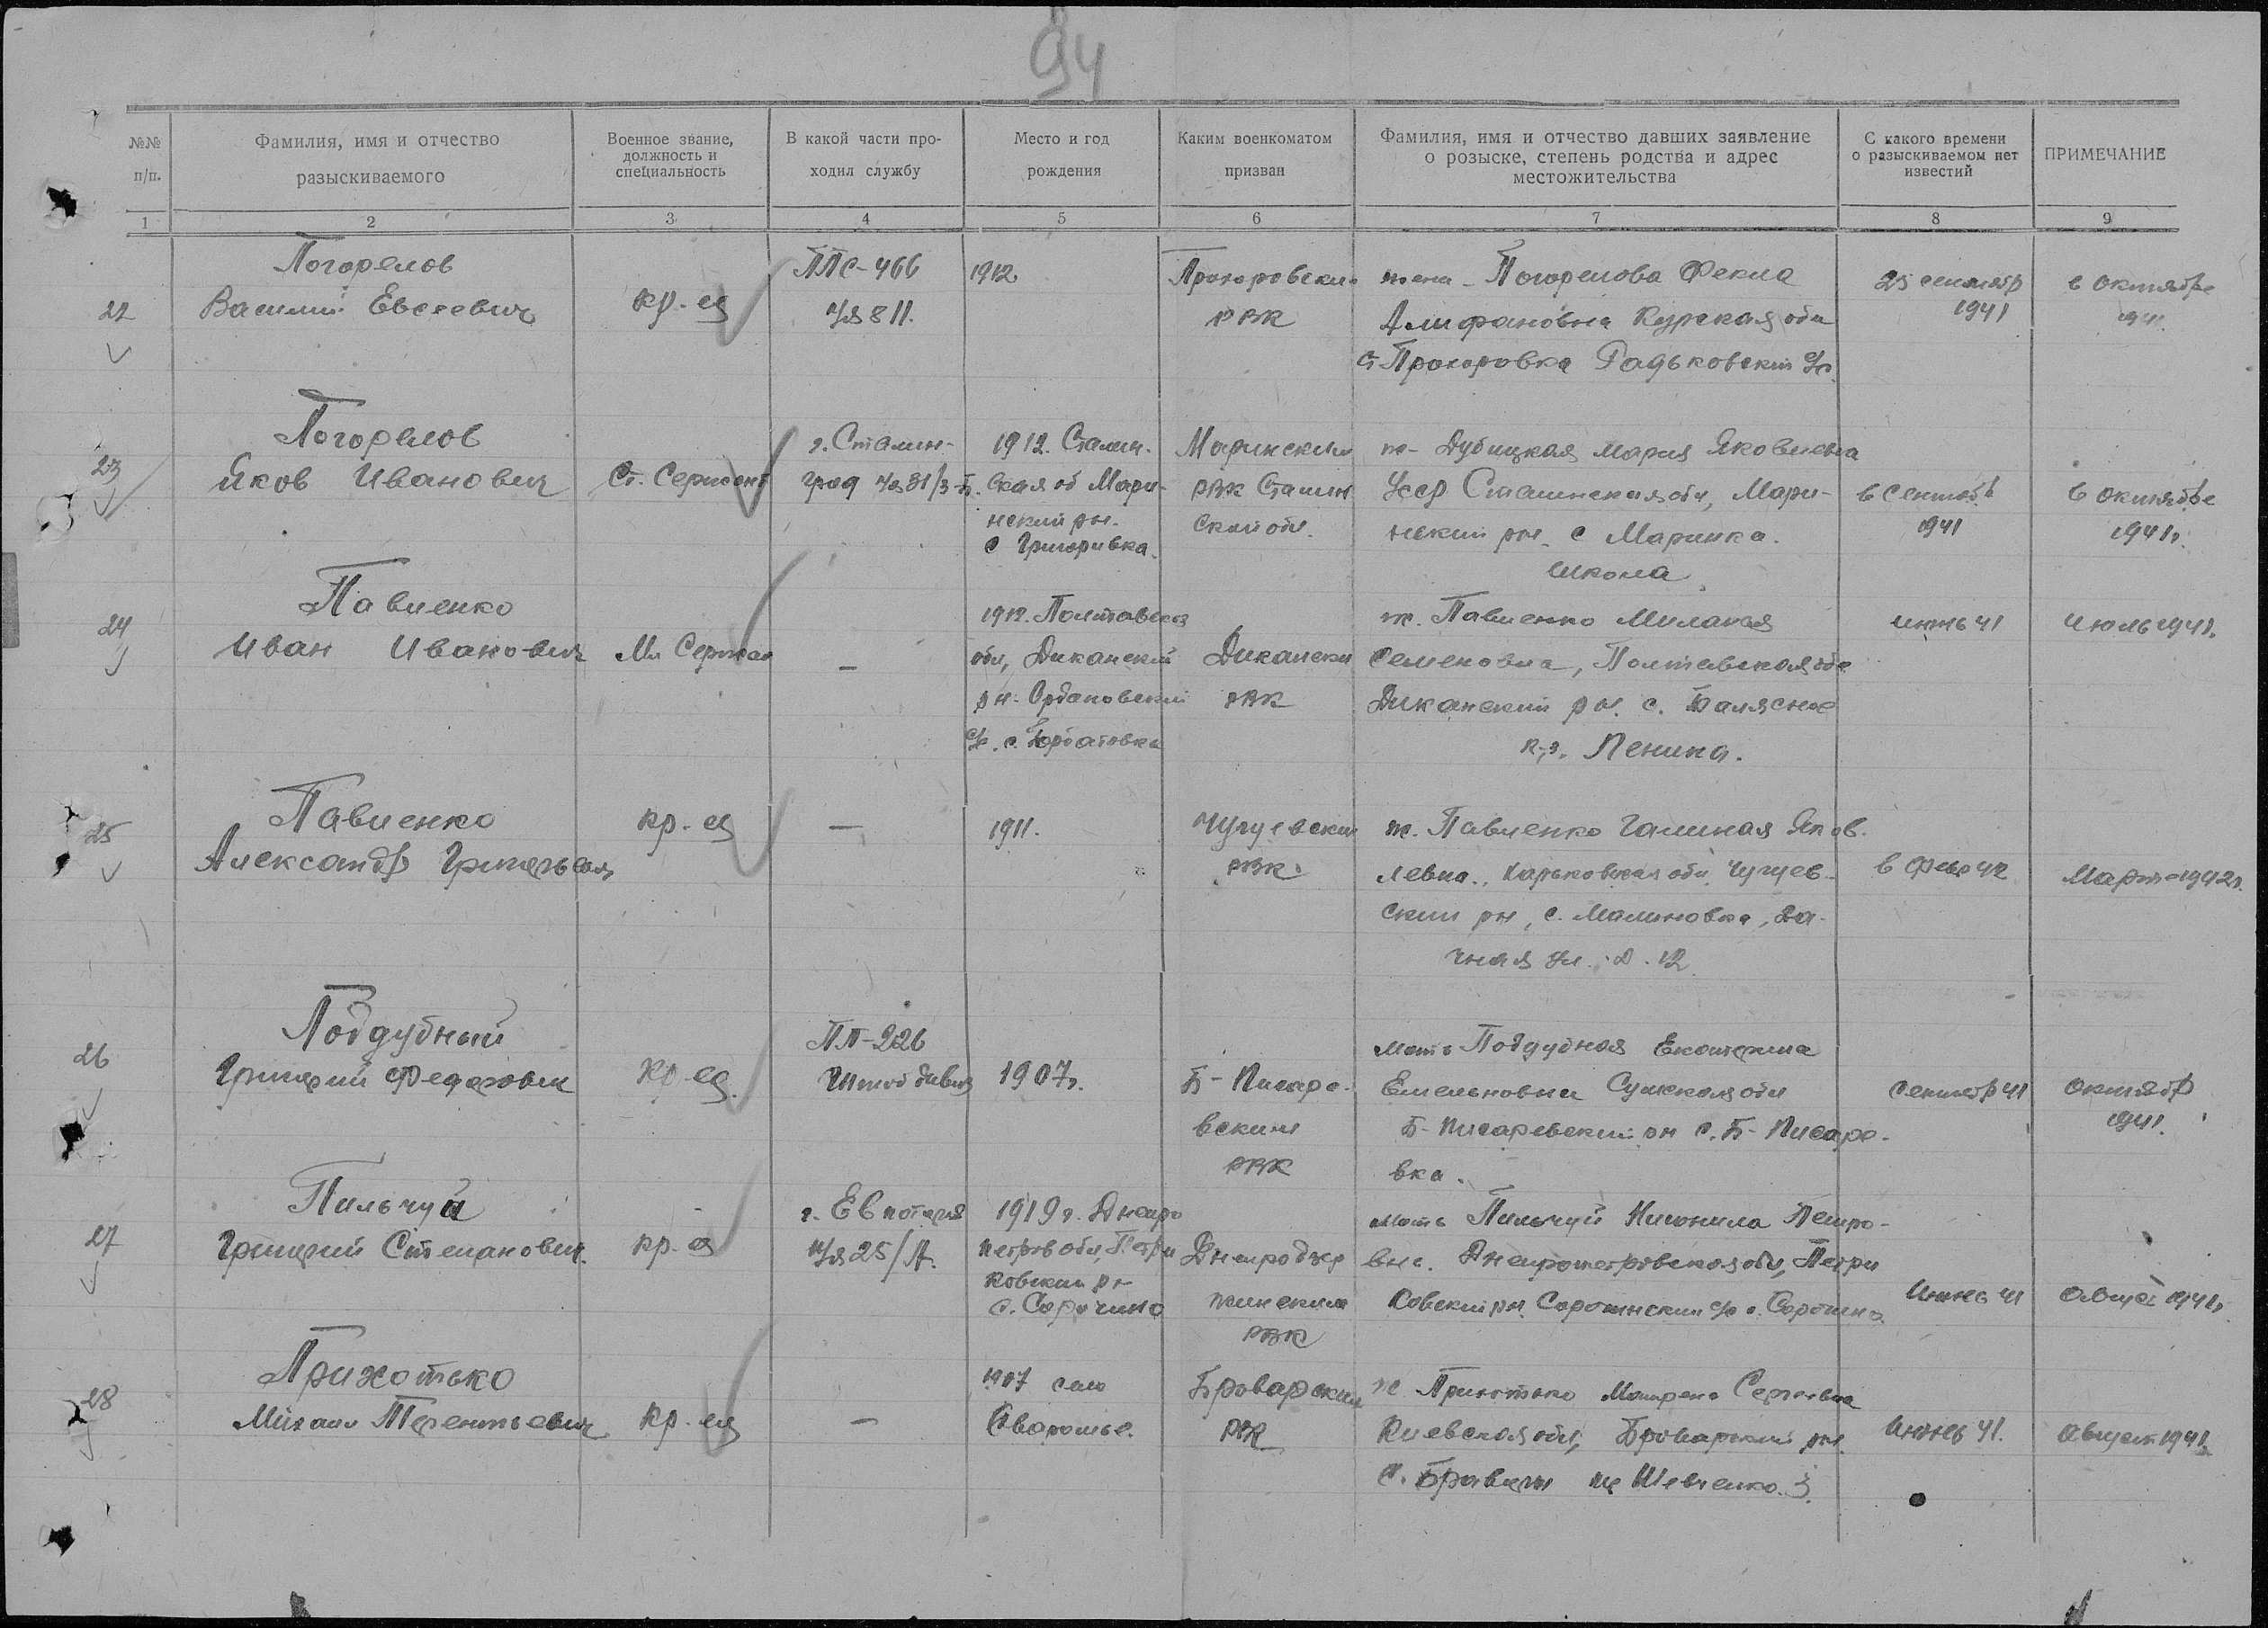 94
№№ п/п.
Фамилия, имя и отчество разыскиваемого
Военное звание, должность и специальность
В какой части проходил службу
Место и год рождения
Каким военкоматом призван
Фамилия, имя и отчество давших заявление о розыске, степень родства и адрес местожительства
С какого времени о разыскиваемом нет известий
ПРИМЕЧАНИЕ
1 2 3 4 5 6 7 8 9
22
Погорелов
Василий Евсеевич
кр-ец
ППС-466
п/я 811.
1912
Прохоровский
РВК
жена - Погорелова Фекла
Алифановна Курская обл
ст. Прохоровка Радьковский с/с.
25 сентябр
1941
в октябре
1941
23
Погорелов
Яков Иванович
Ст. Сержант
г. Сталин-
град п/я 81/3-Б.
1912. Сталин-
ская об Мари-
нский рн.
с Григоривка.
Маринский
РВК Сталин
ской обл.
ж- Дубицкая Мария Яковлевна
Усср Сталинская обл, Мари-
нский рн. с Маринка.
школа
в сентяб
1941
в октябре
1941г.
24
Павленко
Иван Иванович
Мл Сержан
—
1912. Полтавска
обл, Диканский
рн. Ордановский
с/с. с. Горбатовка
Дикански
РВК
ж. Павленко Милания
Семеновна, Полтавская обл
Диканский рн. с. Балясное
к-з. Ленина.
июнь 41
Июль 1941.
25
Павленко
Александр Григорьевич
кр-ец
—
1911.
Чугуевский
РВК.
ж. Павленко Галиная Яков-
левна., Харьковская обл. Чугуев-
ский рн, с. Малиновка, Да-
чная ул. д. 12
в Февр 42
Март-1942г.
26
Поддубный
Григорий Федорович
кр-ец.
ПП-226
Штаб дивиз
1907г.
Б-Писаре-
вский
РВК
мать Поддубная Екатерина
Емельновна Сумская обл
Б-Писаревский рн с. Б-Писаре-
вка.
сентябр 41
октябр
1941.
27
Пильчуй
Григорий Степанович.
кр-ец
г. Евпотария
п/я 25/А.
1919 г. Днепро
петров обл, Петри
ковский рн
с. Сорочино
Днепродзер
жинский
РВК
мать Пильчуй Нионила Петро-
вне. Днепропетровская обл, Петри
ковский рн. Сорочинский с/с с. Сорочино.
Июнь 41
Август 1941г.
28
Прихотько
Михаил Терентьевич
кр-ец
—
1907 село
Броварский
РВК
ж Прихотько Матрена Сергеевна
Киевская обл, Броварский рн.
с. Бровары ул Шевченко. 3.
Июнь 41.
Август 1941г